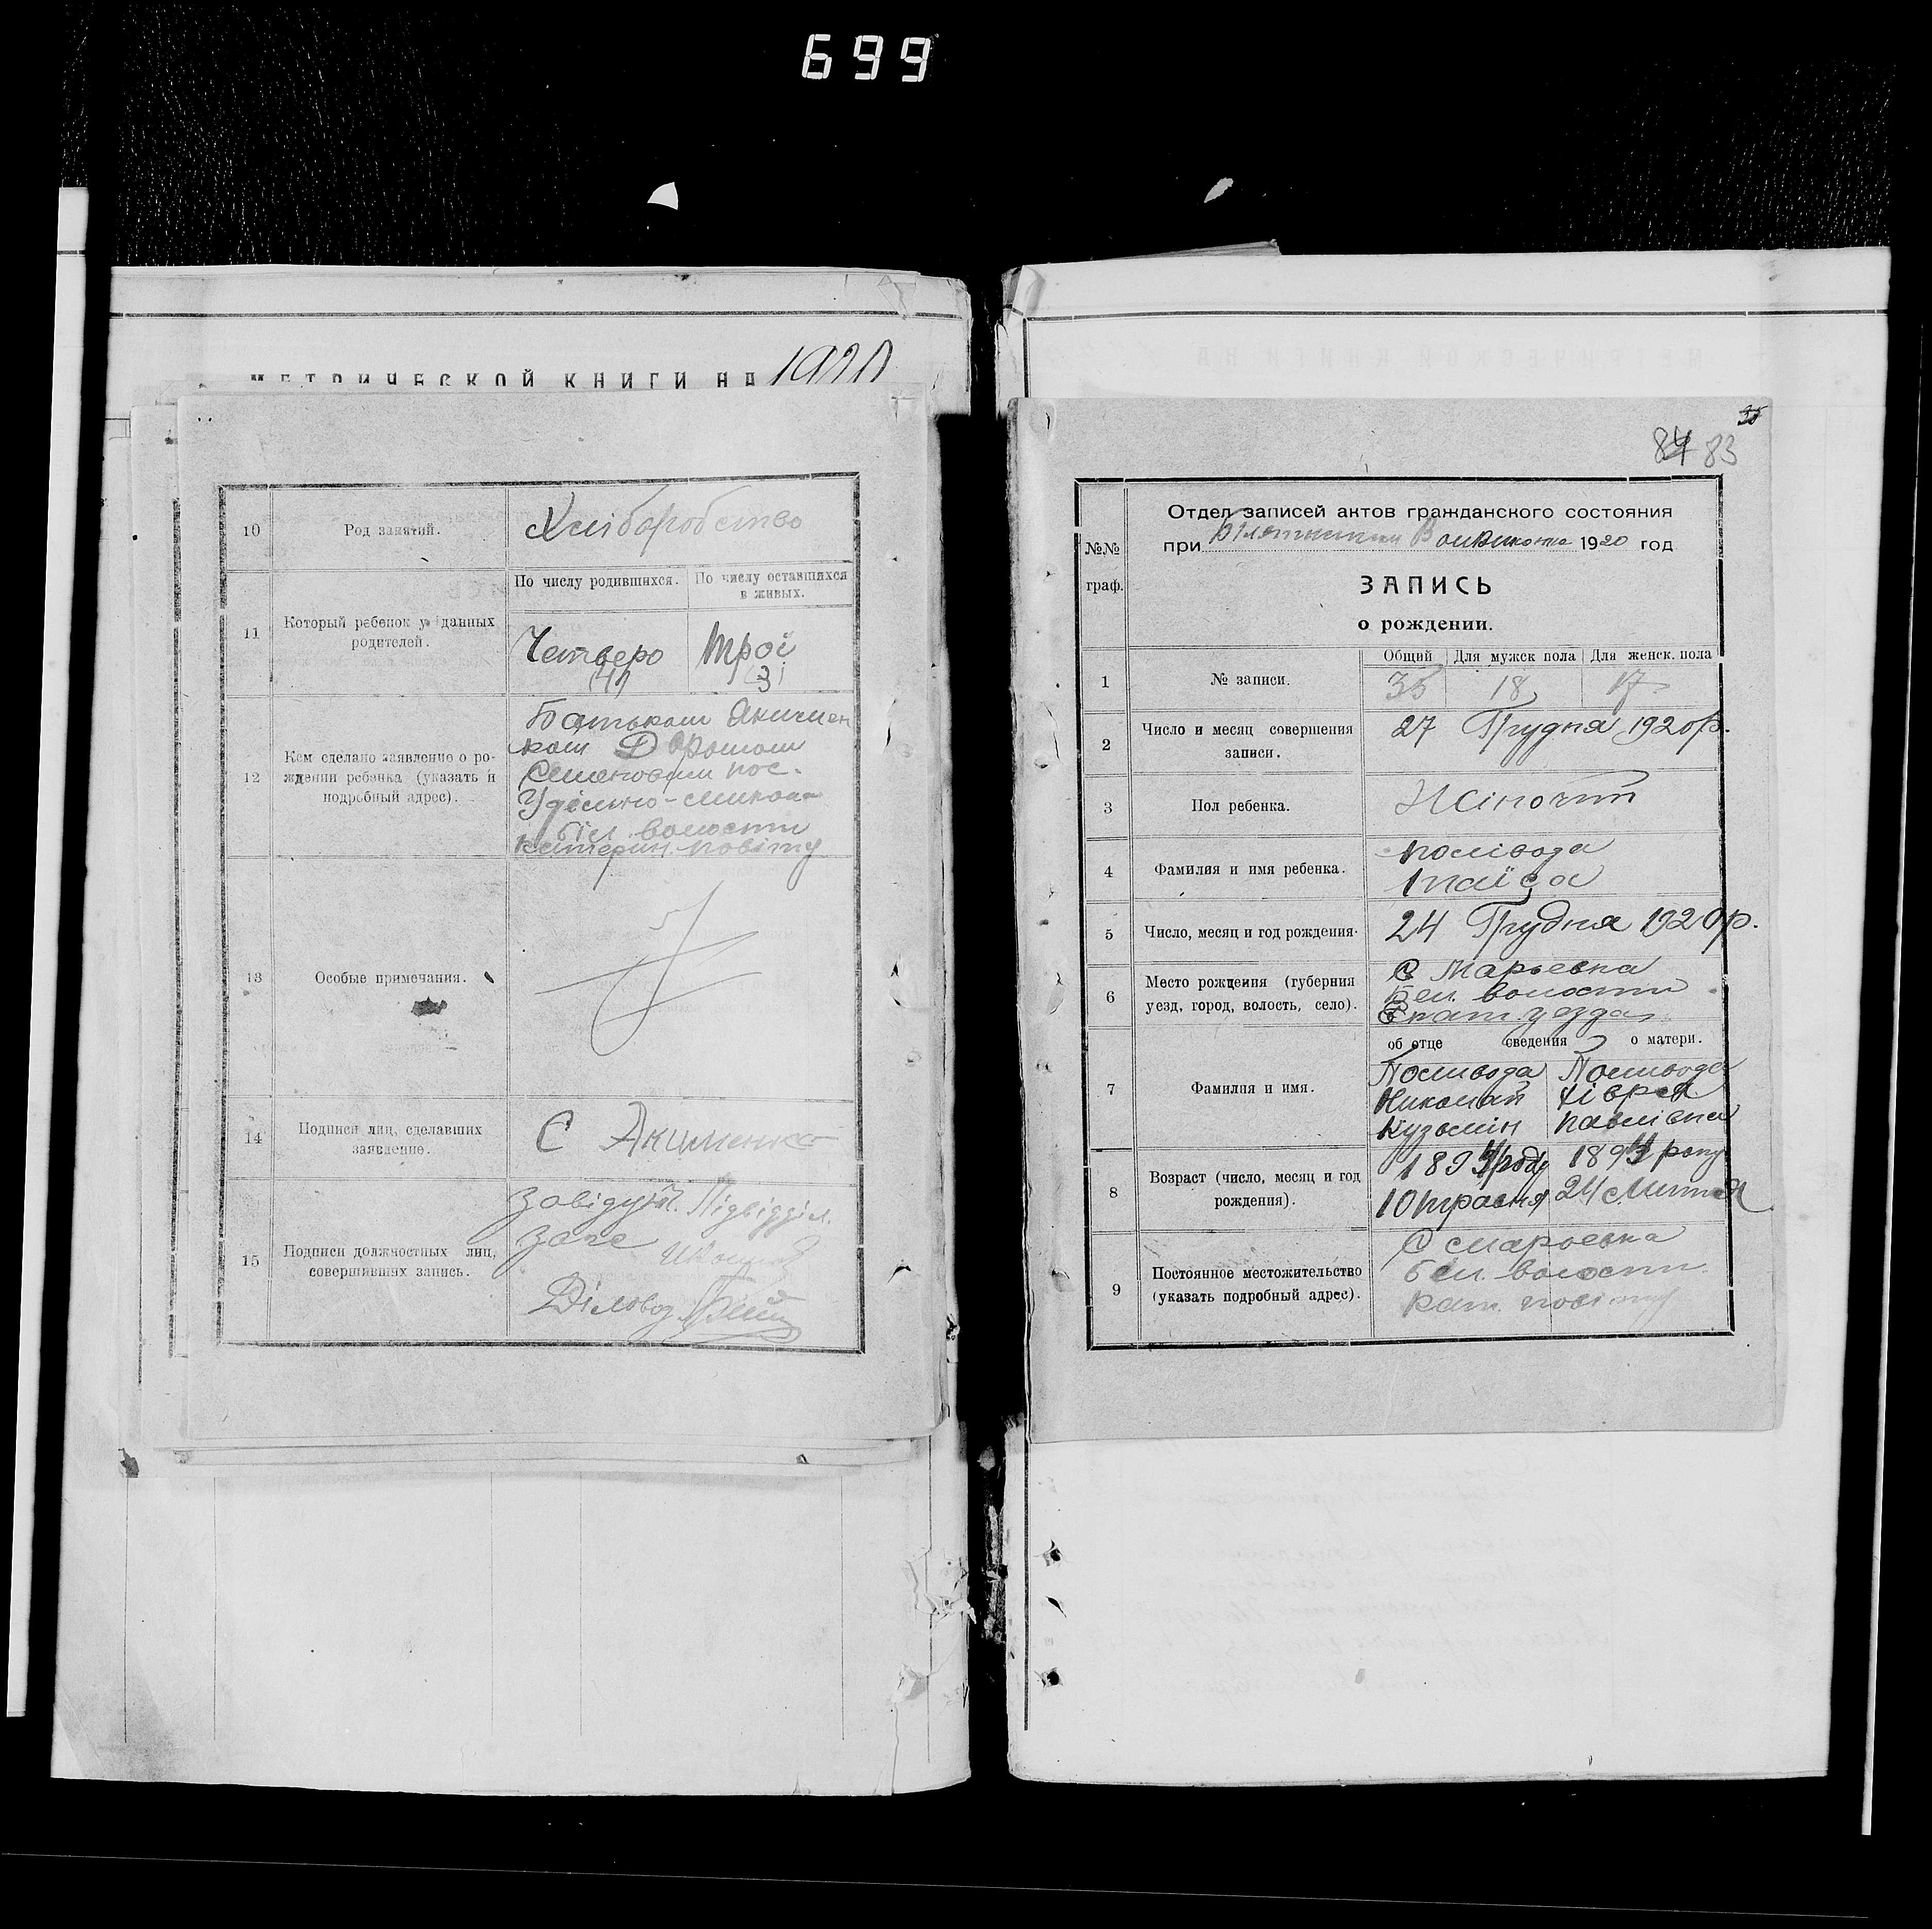 699
МЕТРИЧЕСКОЙ КНИГИ НА 1920
10 Род занятий. Хліборобство
11 Который ребенок у данных родителей.
По числу родившихся. По числу оставшихся в живых.
Четверо Трої
(4) (3)
12 Кем сделано заявление о ро-
ждении ребенка (указать и
подробный адрес).
Батьком Якимен
ком
Семеновим пос.
Удельно-Микол
Біл. волости
Катерин. повіту
13 Особые примечания.
14 Подписи лиц, сделавших
заявление.
С Якименко
15 Подписи должностных лиц,
совершивших запись.
Завідуюч. Підвідділ.
Загс
Діловод
35
84 83
№№
граф.
Отдел записей актов гражданского состояния
при Волвиконке 1920 год
ЗАПИСЬ
о рождении.
Общий Для мужск пола Для женск. пола
1 № записи. 35 18 17
2 Число и месяц совершения
записи.
27 Грудня 1920 р.
3 Пол ребенка. Жіночий
4 Фамилия и имя ребенка.
Полівода
Таїса
5 Число, месяц и год рождения. 24 Грудня 1920 р.
6 Место рождения (губерния
уезд, город, волость, село).
С Марьевка
Бел. волости
Екат. уезда
об отце сведения о матери.
7 Фамилия и имя.
Поливода Поливода
Николай Хівря
Кузьмін Павлівна
8 Возраст (число, месяц и год
рождения).
1894 году 1894 року
10 травня 24 Липня
9 Постоянное местожительство
(указать подробный адрес).
С Марьевка
Бел. волости
Кат. повіту